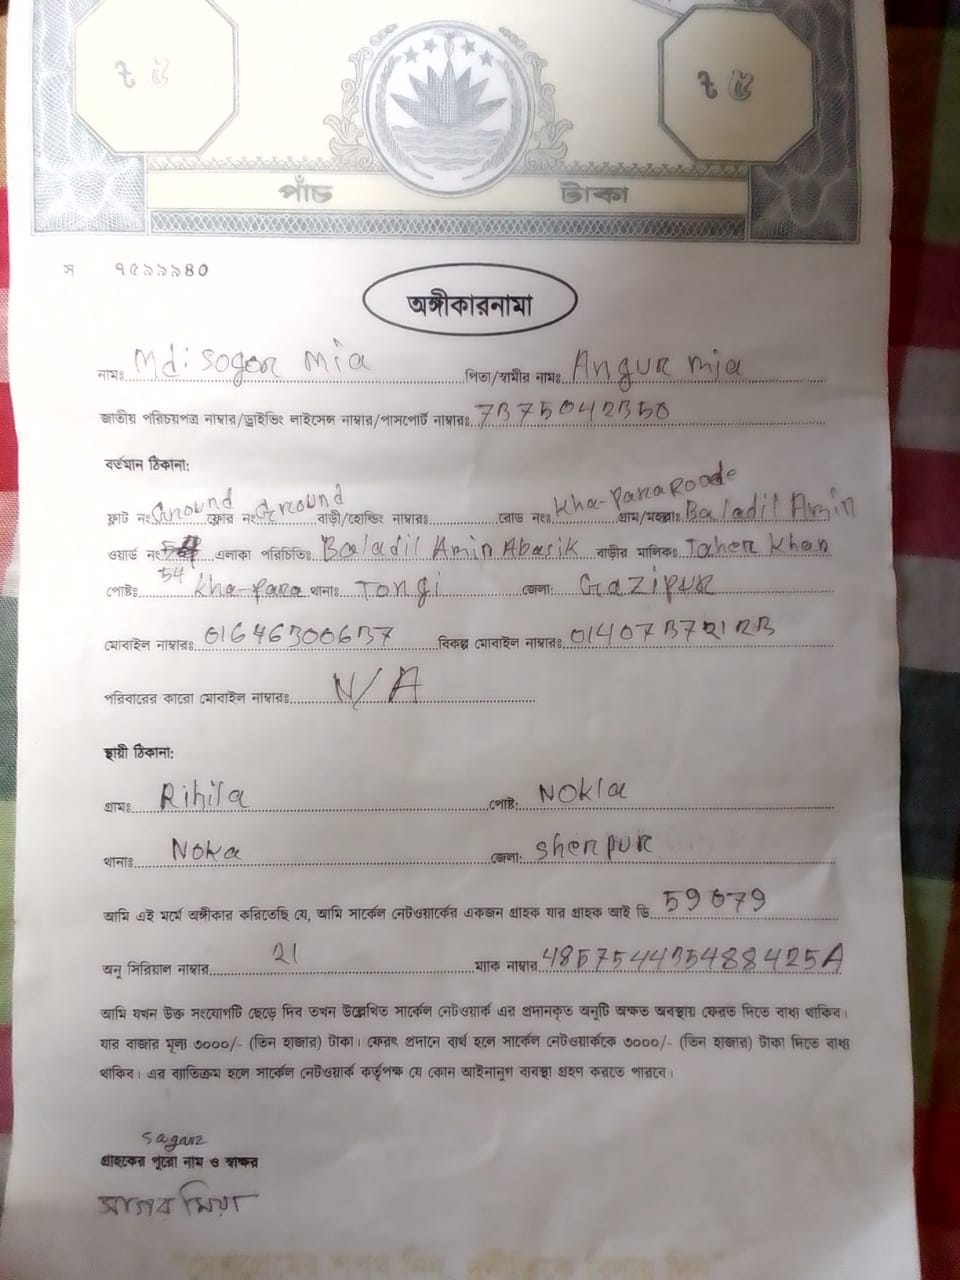 ৳ ৫ ৳ ৫
পাঁচ টাকা
স ৭৫৯৯৯৪০
অঙ্গীকারনামা
নামঃ Md: Sogor Mia পিতা/স্বামীর নামঃ Angur mia
জাতীয় পরিচয়পত্র নাম্বার/ড্রাইভিং লাইসেন্স নাম্বার/পাসপোর্ট নাম্বারঃ 7375042350
বর্তমান ঠিকানা:
ফ্লাট নং Ground ফ্লোর নং Ground বাড়ী/হোল্ডিং নাম্বারঃ রোড নংঃ Kha-Para Roade গ্রাম/মহল্লাঃ Baladil Amin
ওয়ার্ড নং 54 এলাকা পরিচিতিঃ Baladil Amin Abasik বাড়ীর মালিকঃ Taher Khan
পোষ্টঃ Kha-para থানাঃ Tongi জেলা: Gazipur
মোবাইল নাম্বারঃ 01646300637 বিকল্প মোবাইল নাম্বারঃ
পরিবারের কারো মোবাইল নাম্বারঃ N/A
স্থায়ী ঠিকানা:
গ্রামঃ Rihila পোষ্ট: Nokla
থানাঃ Noka জেলা: Sherpur
আমি এই মর্মে অঙ্গীকার করিতেছি যে, আমি সার্কেল নেটওয়ার্কের একজন গ্রাহক যার গ্রাহক আই ডি 59679
অনু সিরিয়াল নাম্বার 21 ম্যাক নাম্বার 485754435488425A
আমি যখন উক্ত সংযোগটি ছেড়ে দিব তখন উল্লেখিত সার্কেল নেটওয়ার্ক এর প্রদানকৃত অনুটি অক্ষত অবস্থায় ফেরত দিতে বাধ্য থাকিব।
যার বাজার মূল্য ৩০০০/- (তিন হাজার) টাকা। ফেরৎ প্রদানে ব্যর্থ হলে সার্কেল নেটওয়ার্ককে ৩০০০/- (তিন হাজার) টাকা দিতে বাধ্য
থাকিব। এর ব্যতিক্রম হলে সার্কেল নেটওয়ার্ক কর্তৃপক্ষ যে কোন আইনানুগ ব্যবস্থা গ্রহণ করতে পারবে।
sagar
গ্রাহকের পুরো নাম ও স্বাক্ষর
সাগর মিয়া